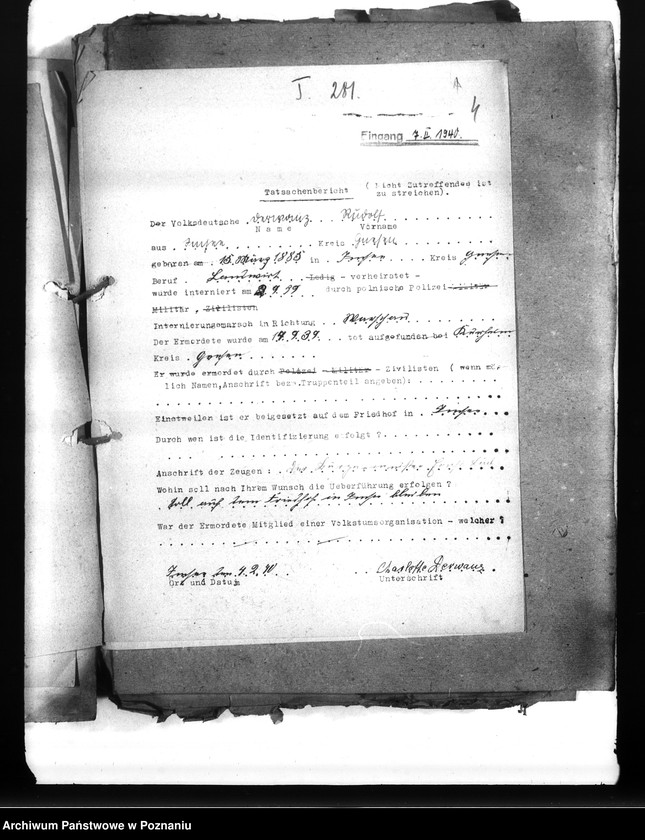 I. 281.
4
Eingang 7.II.1940.
Tatsachenbericht ( Nicht Zutreffendes ist
zu streichen).
Der Volksdeutsche . Derwanz . . . Rudolf . . . . . . . . . .
Name Vorname
aus . . . . . . . . . Kreis Gnesen . . . . . . . . .
geboren am . 15. März 1885 in . . . . . Kreis Gnesen
Beruf . Landwirt . . . Ledig - verheiratet -
wurde interniert am 2.9.39 . . durch polnische Polizei Militär
Militär , Zivilisten
Internierungsmarsch in Richtung . . Warschau . . . . . . . .
Der Ermordete wurde am 17.9.39 . . tot aufgefunden bei
Kreis . Gnesen . . . . . . . .
Er wurde ermordet durch Polizei - Militär - Zivilisten ( wenn mög-
lich Namen,Anschrift bezw.Truppenteil angeben): . . . . . . . . .
Einstweilen ist er beigesetzt auf dem Friedhof in . . . . .
Durch wen ist die Identifizierung erfolgt ? . . . . . . . . . .
Anschrift der Zeugen :
Wohin soll nach Ihrem Wunsch die Ueberführung erfolgen ?
. Soll auf dem Friedhof in bleiben
War der Ermordete Mitglied einer Volkstumsorganisation - welcher ?
den 4.2.40 . . . . . Charlotte Derwanz.
Ort und Datum Unterschrift
Archiwum Państwowe w Poznaniu